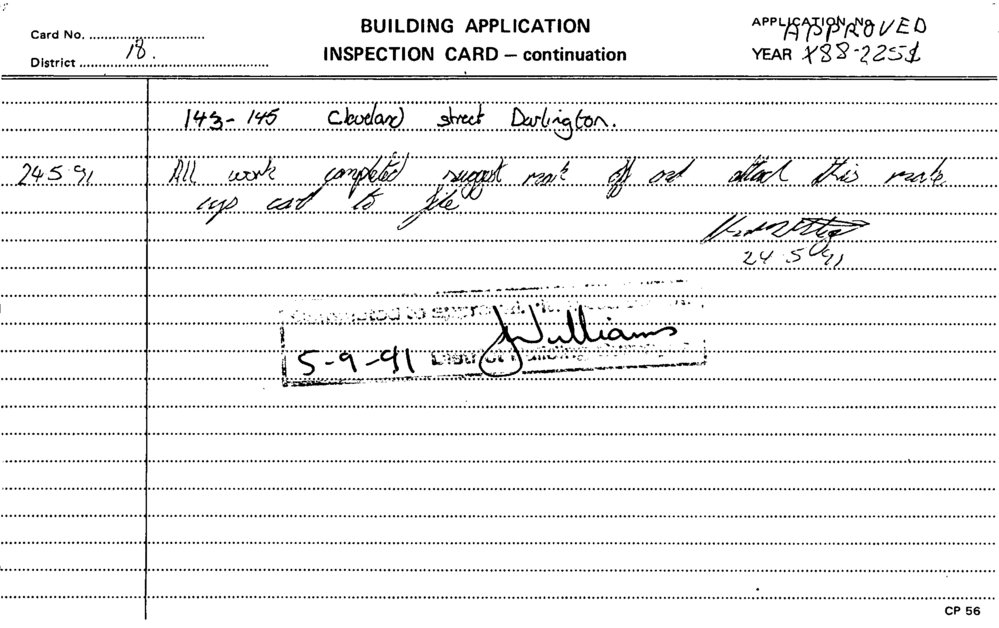 Card No.
District 18.
BUILDING APPLICATION
INSPECTION CARD – continuation
APPLICATION No.
APPROVED
YEAR X88-2251
143-145 Cleveland street Darlington.
24 5 91 All work completed suggest mark off and attach this
card to file
24 5 91
completed to
JWilliams
5-9-91 District Building
CP 56